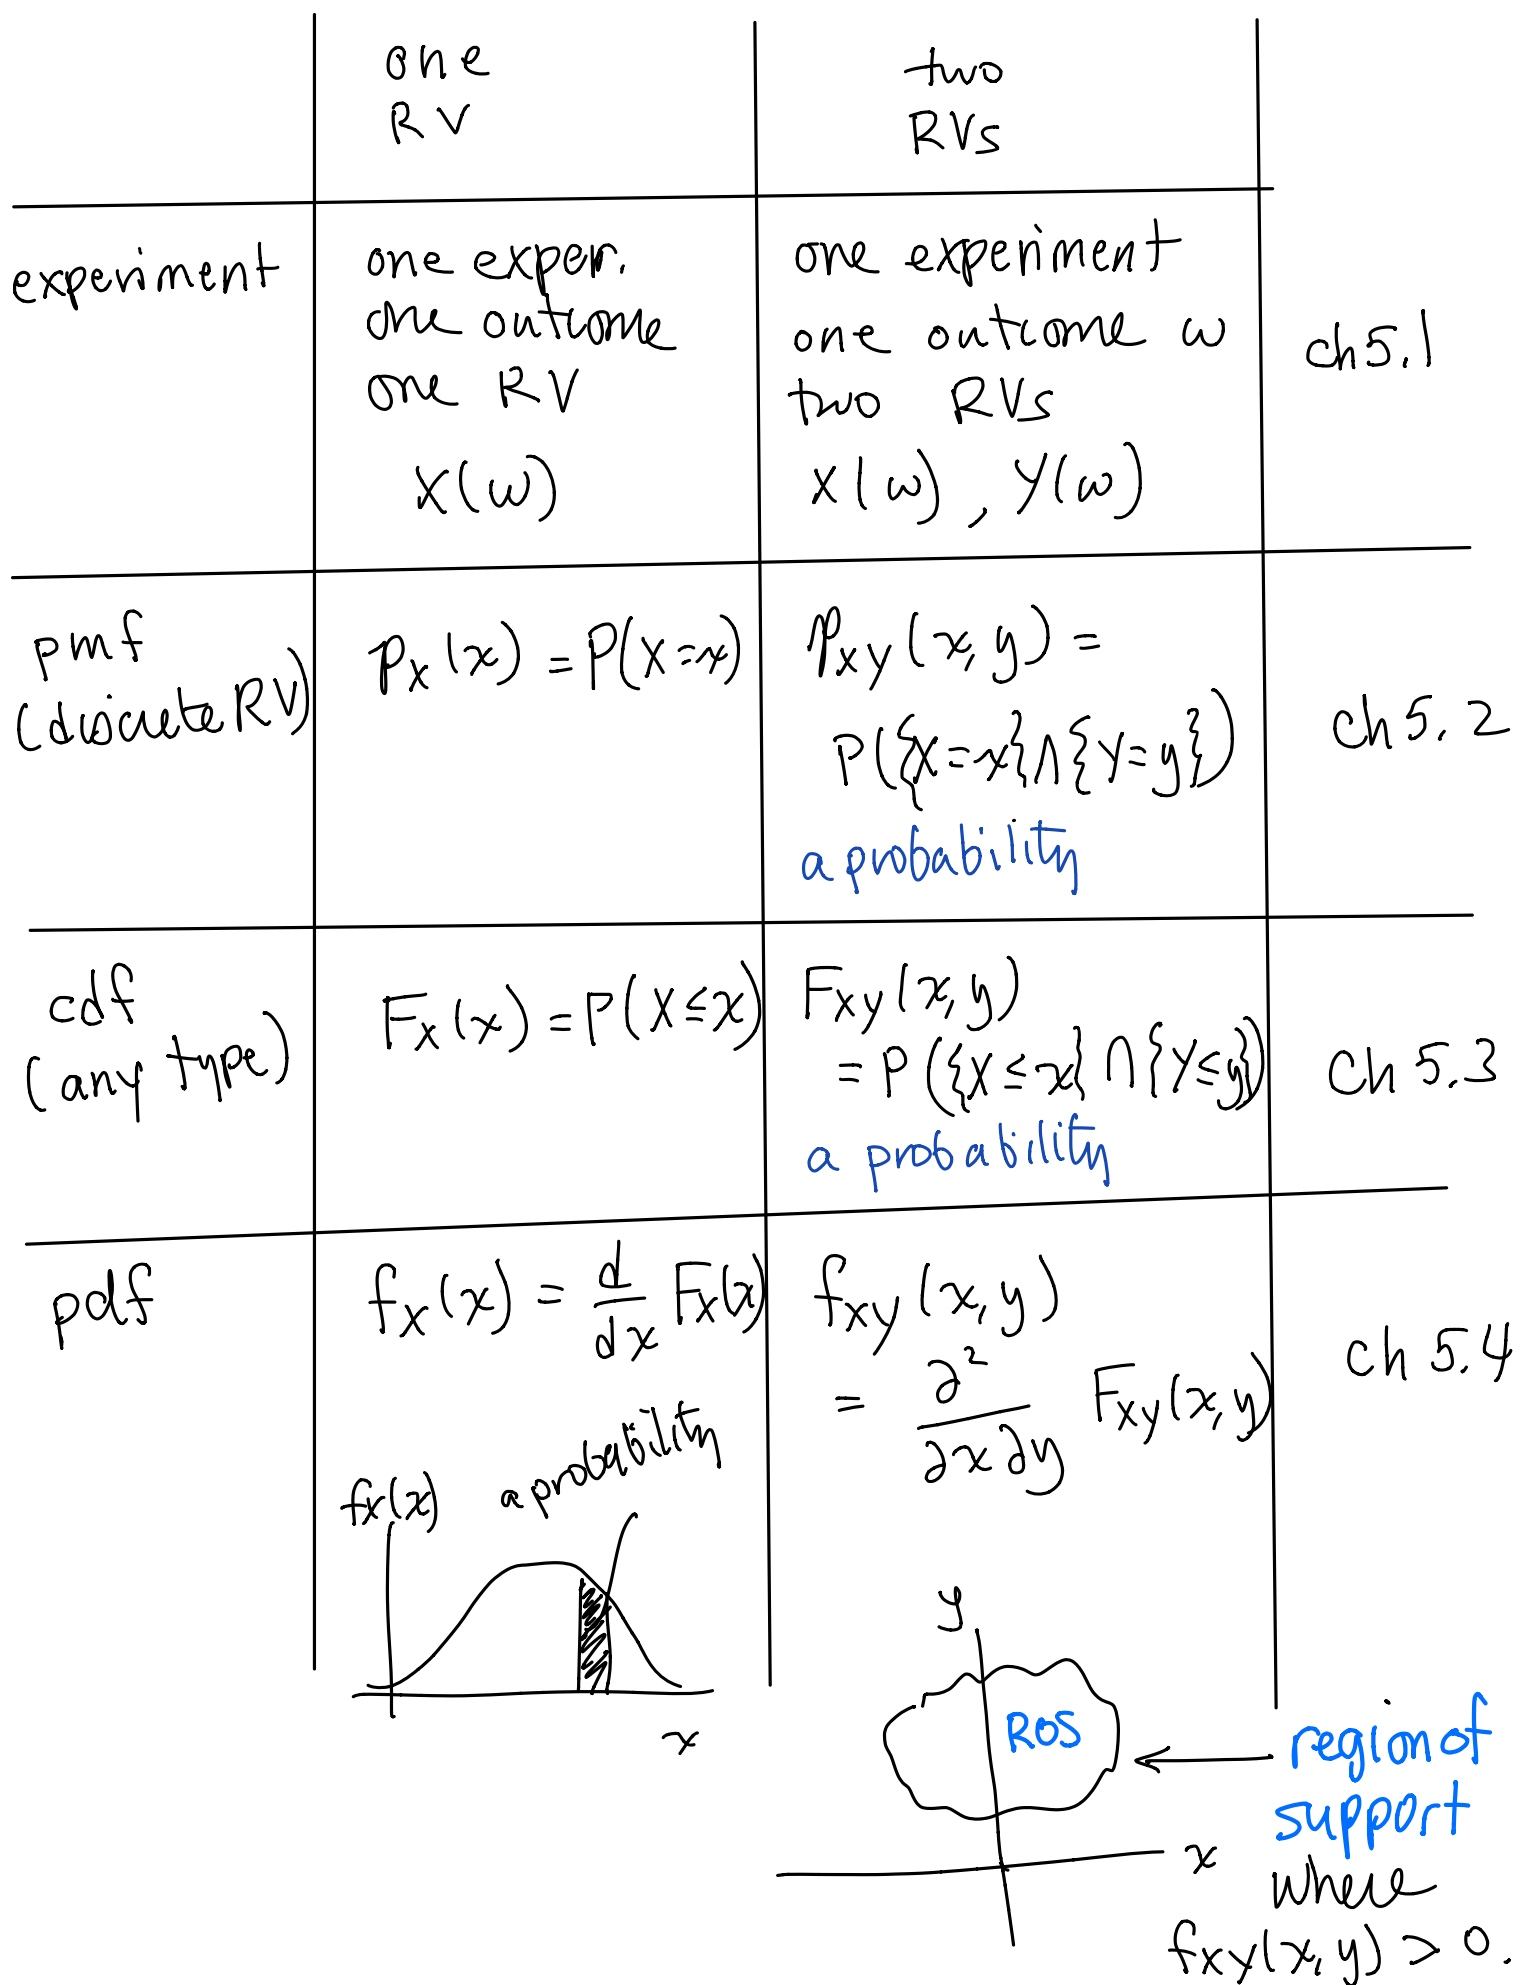 one
RV
two
RVs
experiment
one exper.
one outcome
one RV
X(ω)
one experiment
one outcome ω
two RVs
X(ω), Y(ω)
ch 5.1
pmf
(discrete RV)
p_X(x) = P(X=x)
p_XY(x,y) =
P({X=x}∩{Y=y})
a probability
ch 5.2
cdf
(any type)
F_X(x) = P(X≤x)
F_XY(x,y)
= P({X≤x}∩{Y≤y})
a probability
ch 5.3
pdf
f_X(x) = d/dx F_X(x)
a probability
f_X(x)
x
f_XY(x,y)
= ∂²/∂x∂y F_XY(x,y)
ch 5.4
y
ROS
x
region of
support
where
f_XY(x,y) > 0.